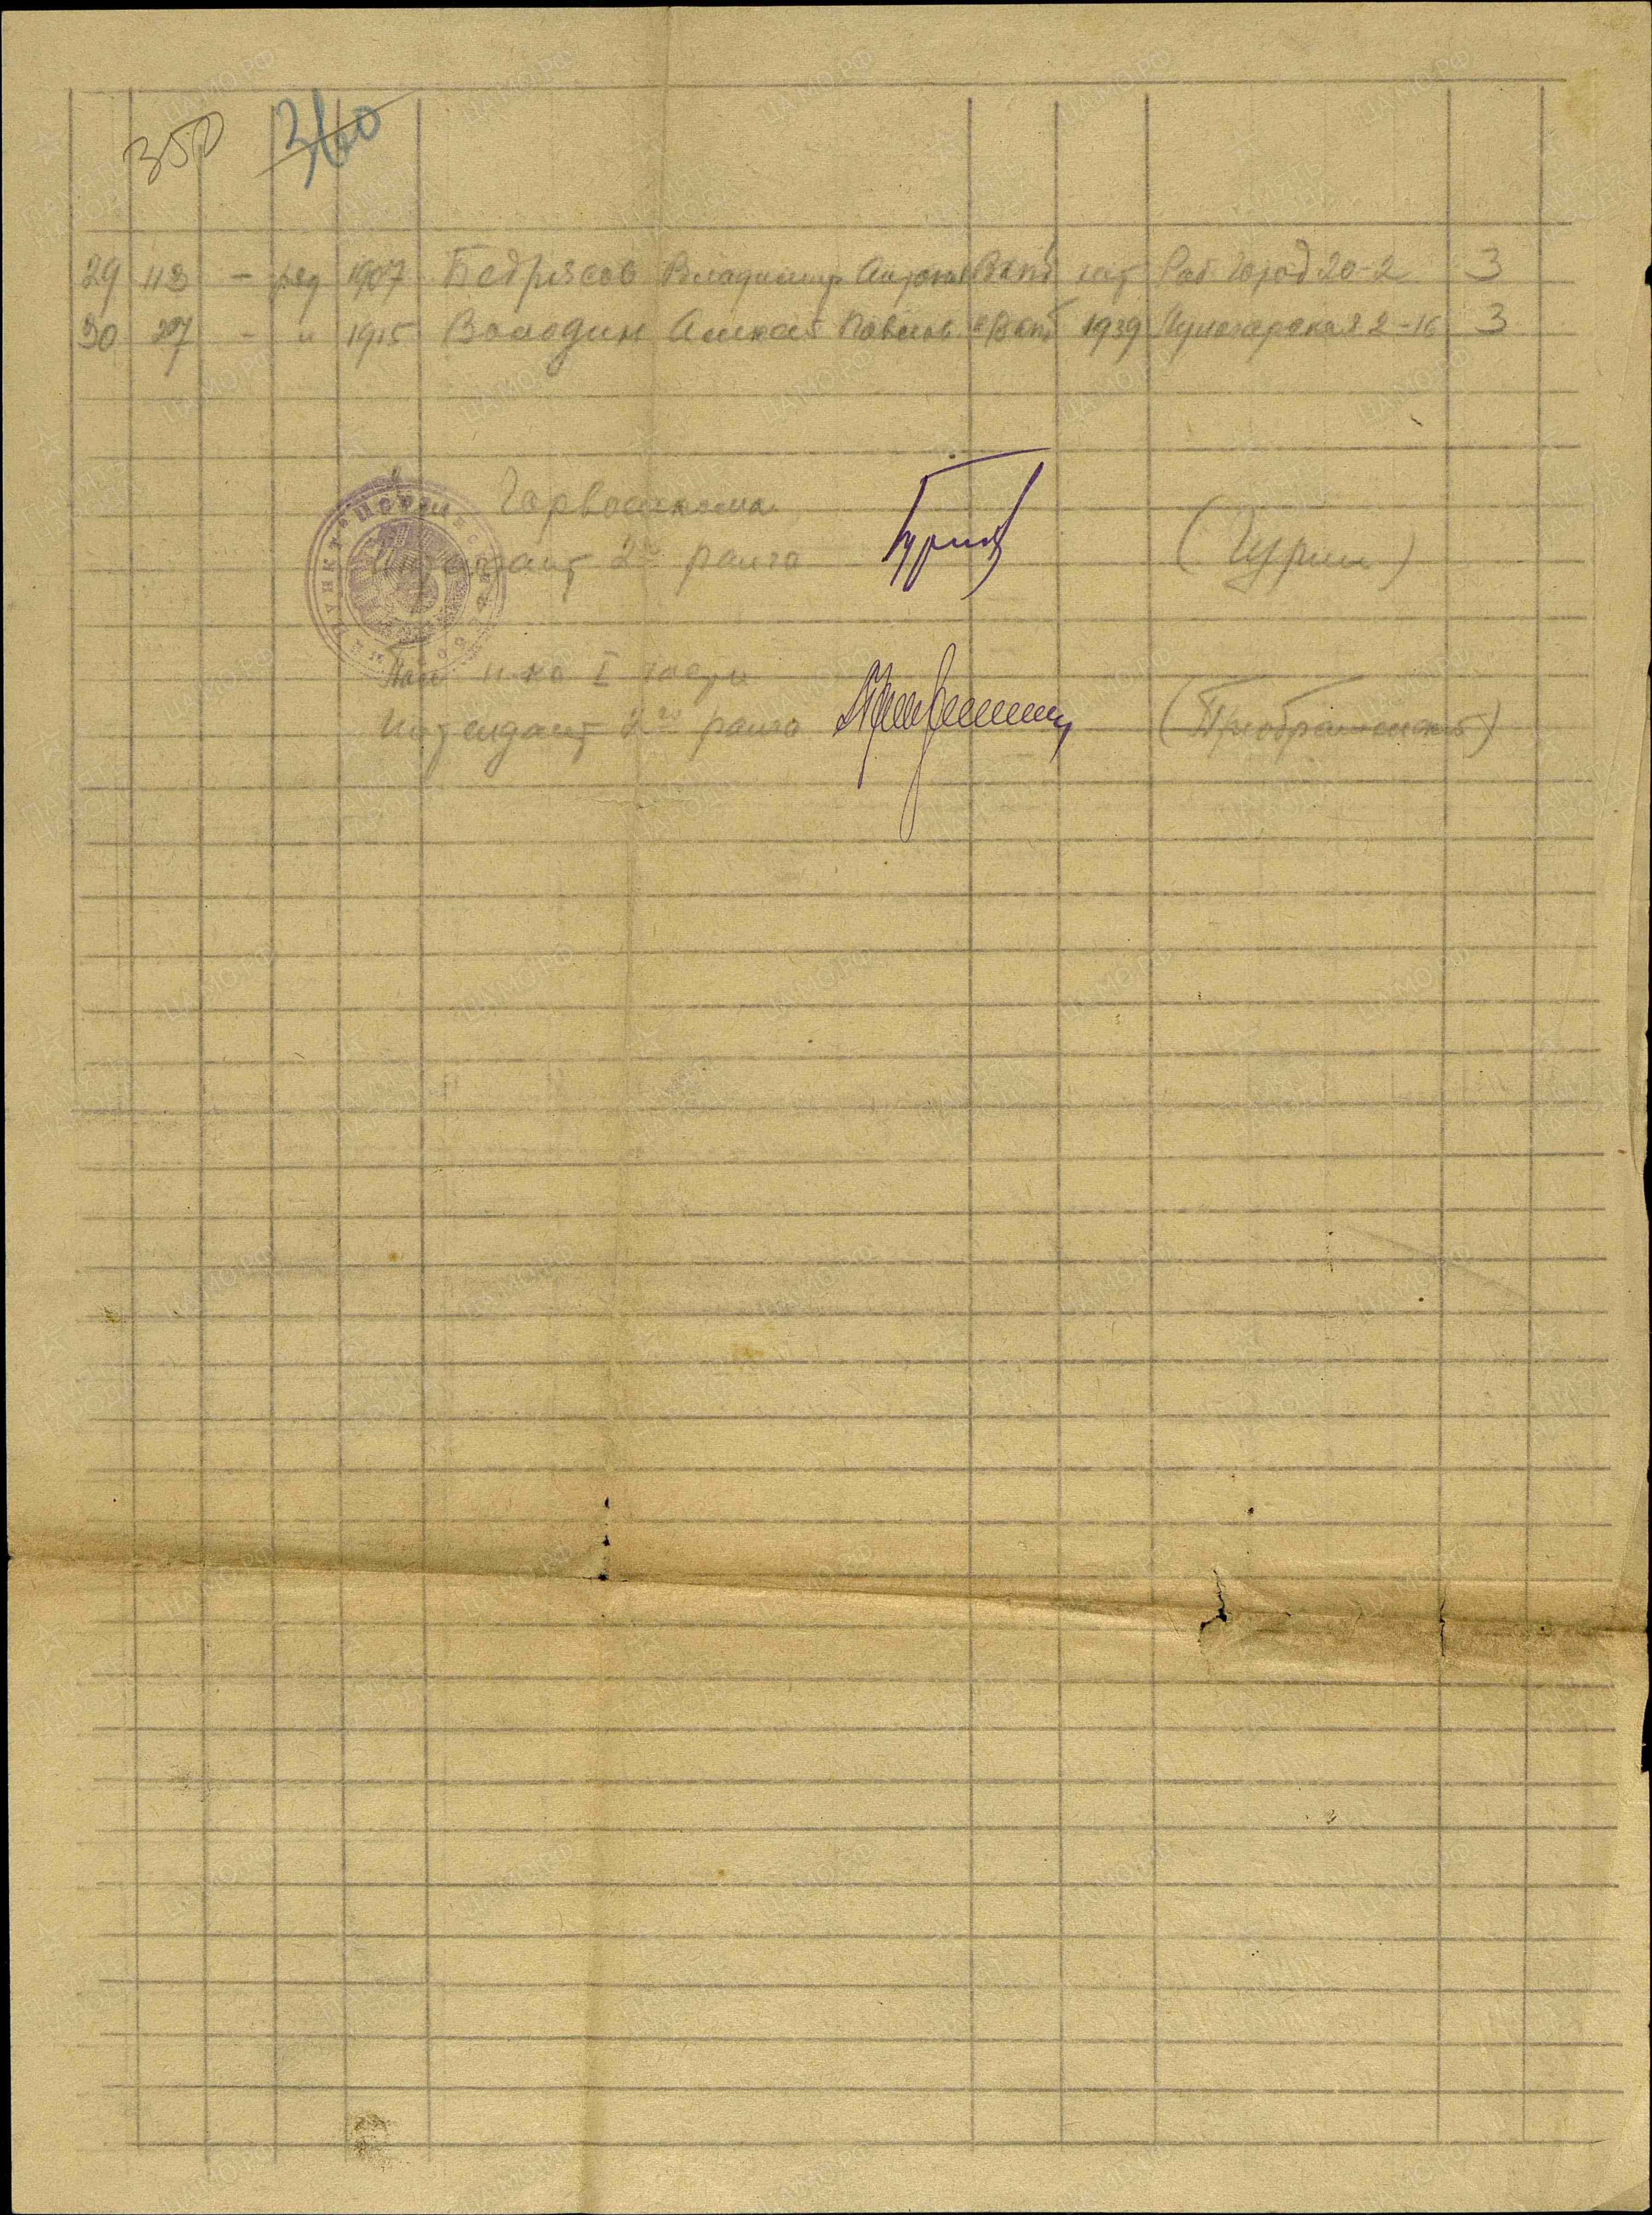 350 360
29 113 - ряд 1907 Бедрясов Владимир Антонов ВКПб нет Раб. Город 20-2 3
30 27 - и 1915 Володин Алексей Павлов. ВКПб 1939 2-16 3
Горвоенкома
Интендант 2го ранга (Гурин)
Нач I части
Интендант 2го ранга (Преображенский)